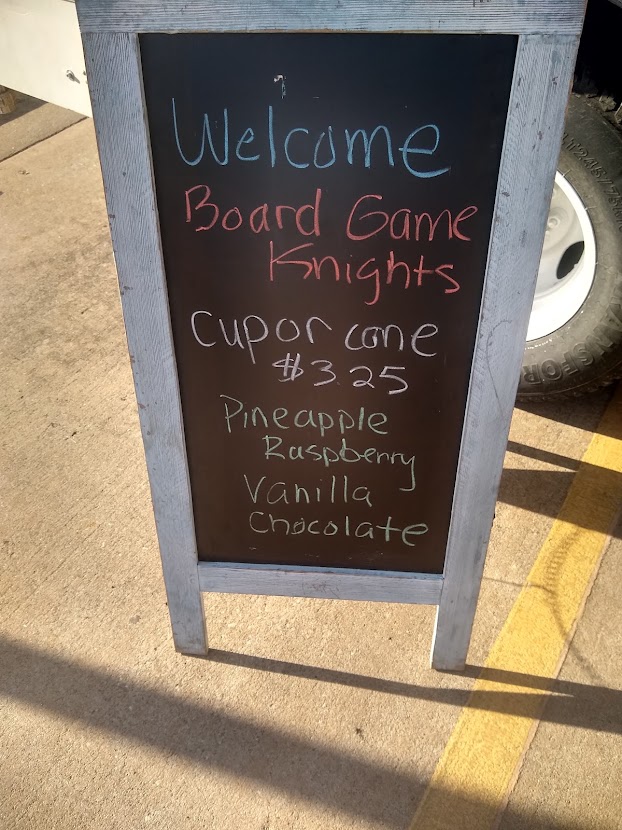 Welcome
Board Game
Knights
Cup or cone
$3.25
Pineapple
Raspberry
Vanilla
Chocolate